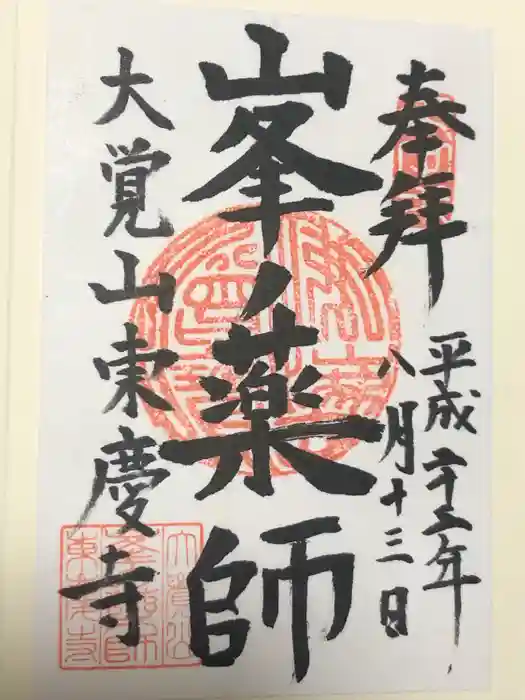 奉拝
平成二十三年
八月十三日
峯ノ薬師
大覚山東慶寺